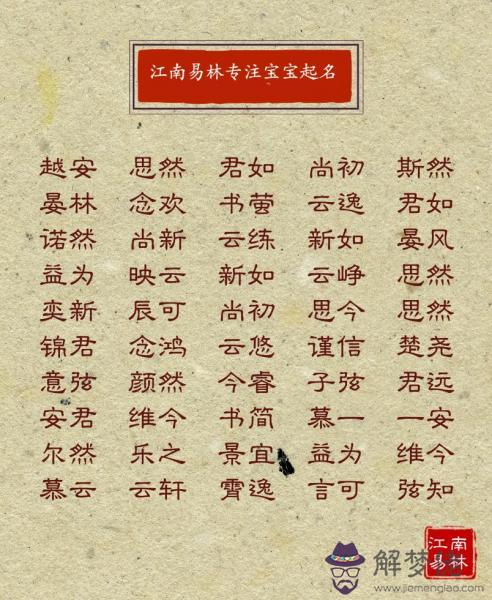 江南易林专注宝宝起名
越安 思然 君如 尚初 斯然
晏林 念欢 书萤 云逸 君如
诺然 尚新 云练 新如 晏风
益为 映云 新如 云峥 思然
奕新 辰可 尚初 思今 思然
锦君 念鸿 云悠 谨信 楚尧
意弦 颜然 今睿 子弦 君远
安君 维今 书简 慕一 一安
尔然 乐之 景宜 益为 维今
慕云 云轩 霄逸 言可 弦知
江南
易林
www.jiemengjiao.com